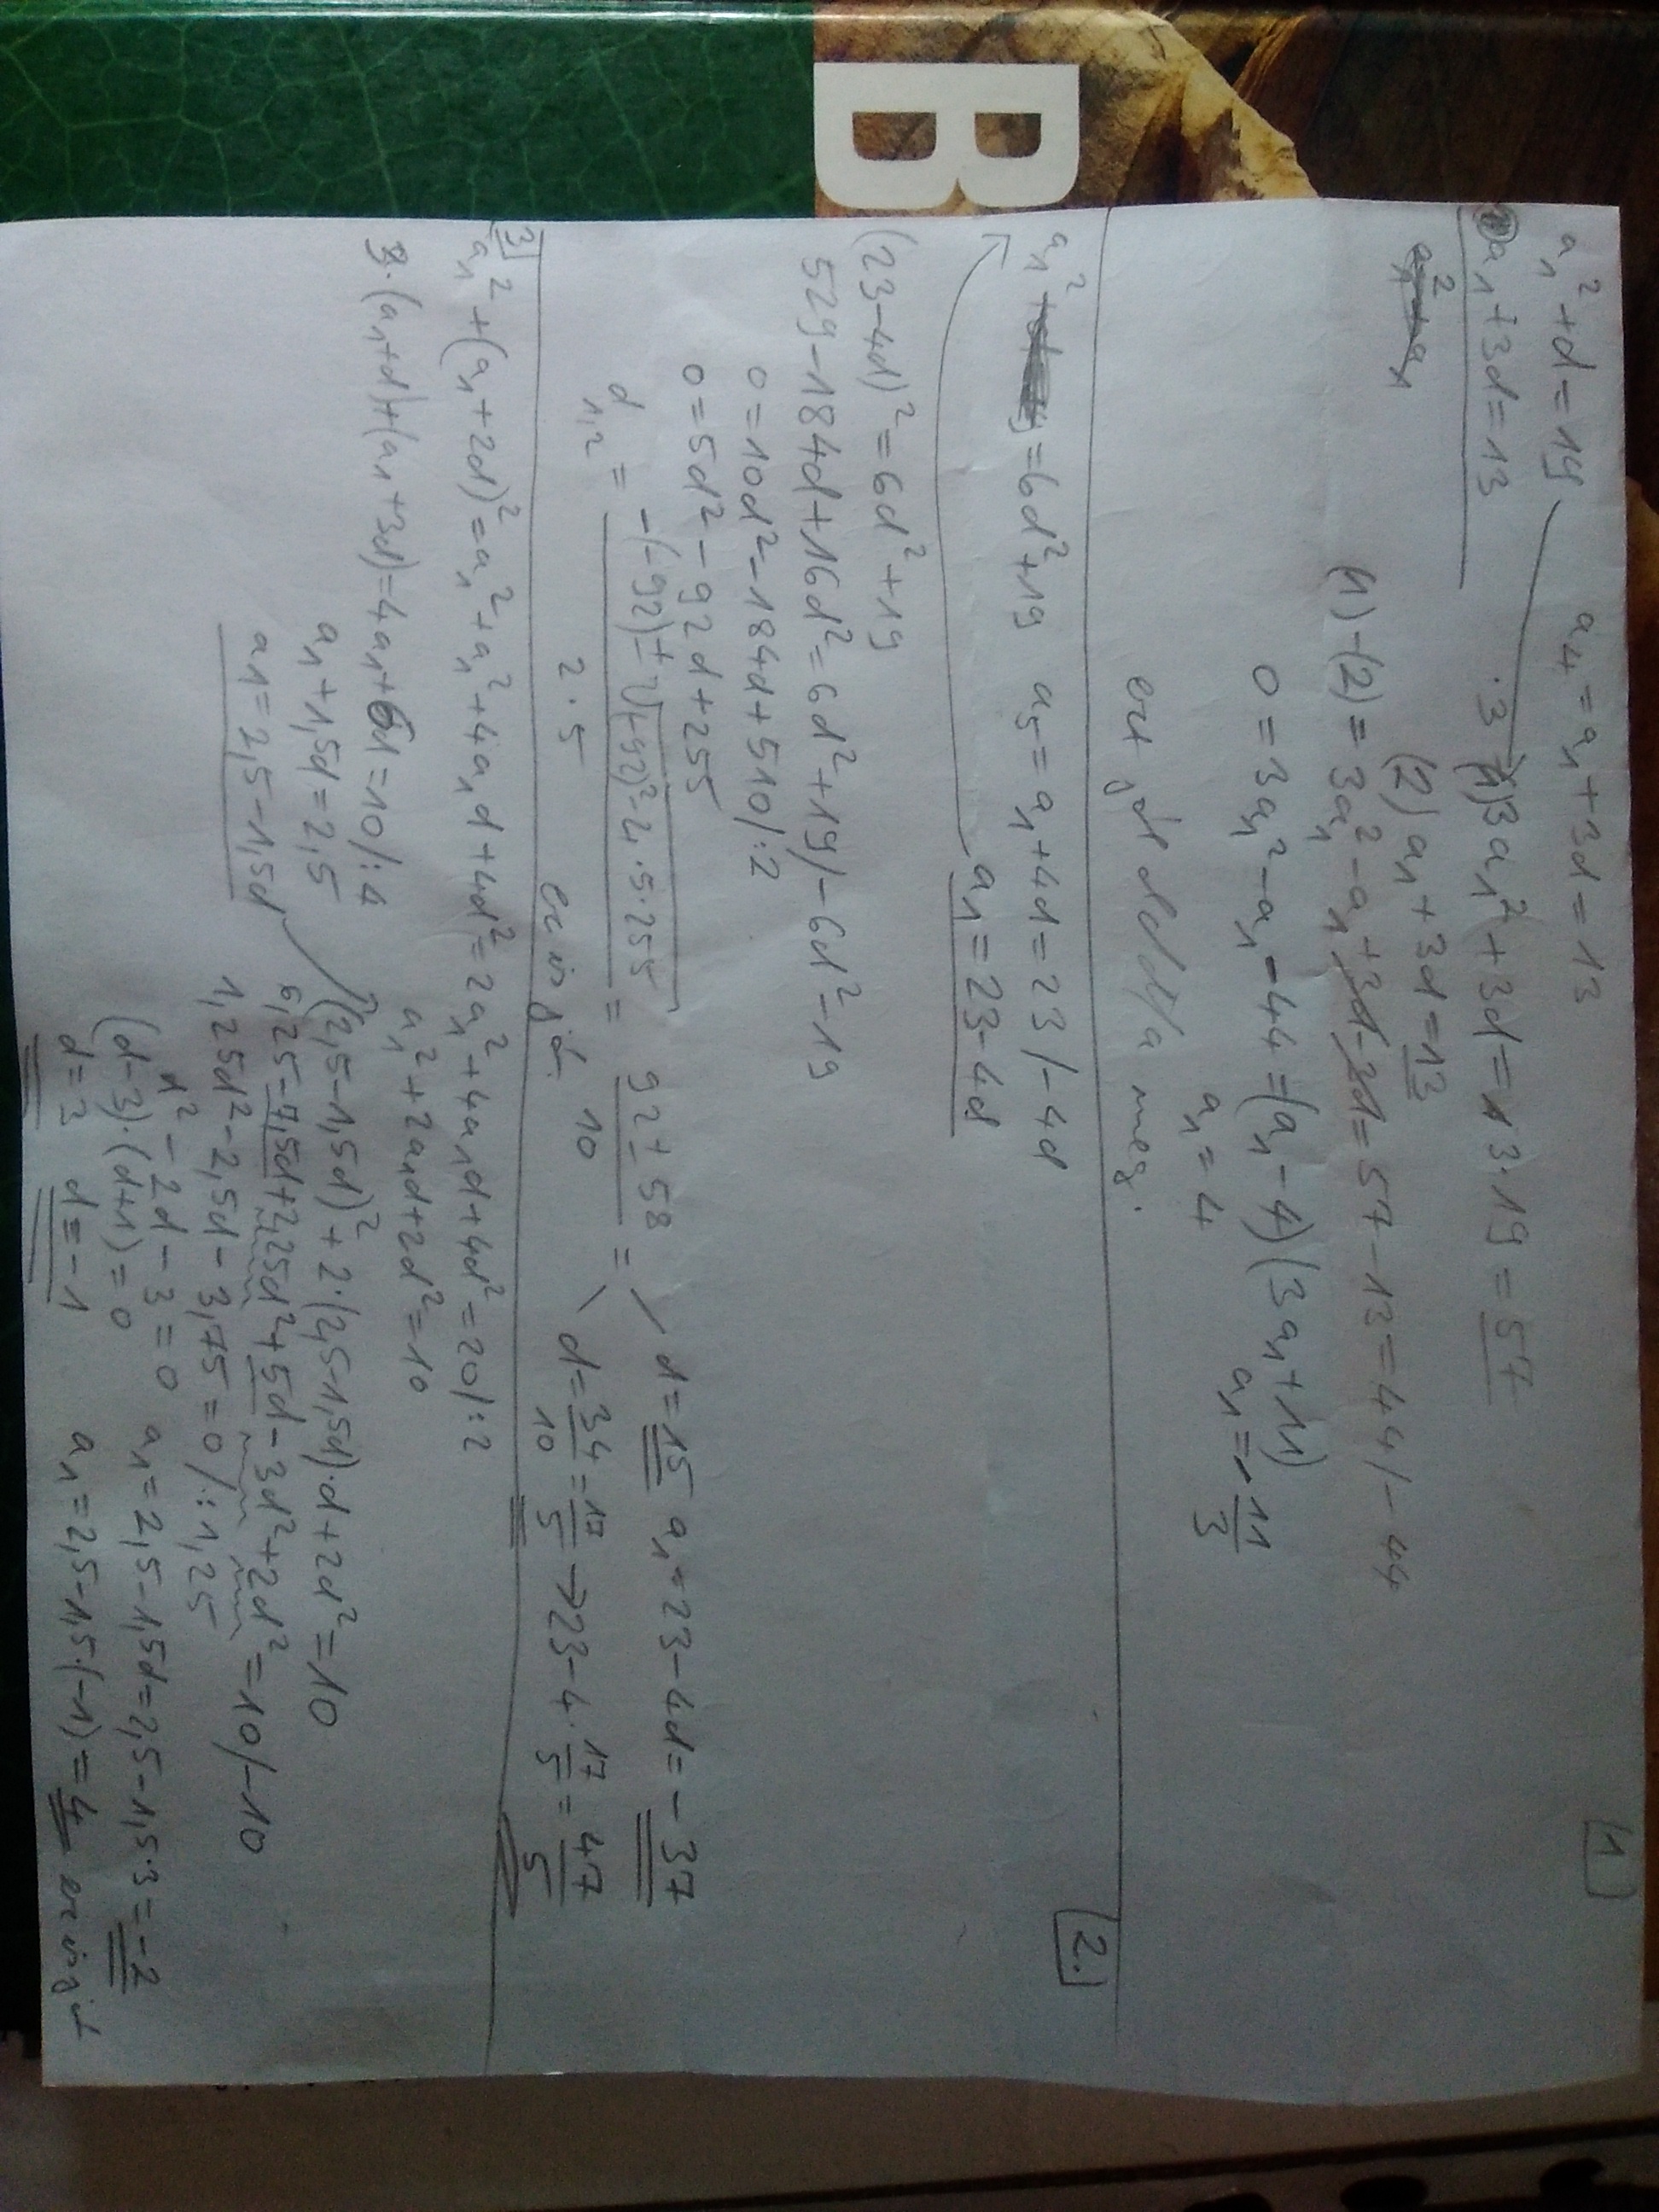 B
1
a₁²+d=19 a₄=a₁+3d=13
a₁+3d=13 ·3 (1) 3a₁²+3d=3·19=57
(2) a₁+3d=13
(1)-(2)=3a₁²-a₁+3d-3d=57-13=44/-44
0=3a₁²-a₁-44=(a₁-4)(3a₁+11)
a₁=4 a₁=-11/3
ezt jól oldotta meg.
2.
a₁²=6d²+19 a₅=a₁+4d=23/-4d
a₁=23-4d
(23-4d)²=6d²+19
529-184d+16d²=6d²+19/-6d²-19
0=10d²-184d+510/:2
0=5d²-92d+255
d₁,₂=(-(-92)±√((+92)²-4·5·255))/(2·5)=(92±58)/10= d=15 a₁=23-4d=-37
d=34/10=17/5→23-4·17/5=47/5
ez is jó.
3
a₁²+(a₁+2d)²=a₁²+a₁²+4a₁d+4d²=2a₁²+4a₁d+4d²=20/:2
a₁²+2a₁d+2d²=10
3·(a₁+d)+(a₁+3d)=4a₁+6d=10/:4
a₁+1,5d=2,5
a₁=2,5-1,5d
(2,5-1,5d)²+2·(2,5-1,5d)·d+2d²=10
6,25-7,5d+2,25d²+5d-3d²+2d²=10/-10
1,25d²-2,5d-3,75=0/:1,25
d²-2d-3=0 a₁=2,5-1,5d=2,5-1,5·3=-2
(d-3)·(d+1)=0
d=3 d=-1 a₁=2,5-1,5·(-1)=4 ez is jó